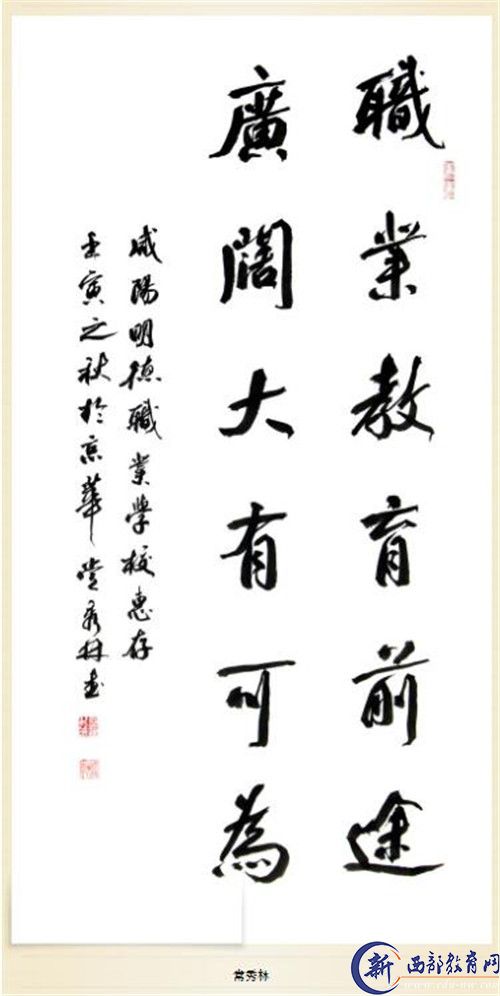 職業教育前途
廣闊大有可為
咸陽明德職業學校惠存
壬寅之秋於京華常秀林書
常秀林
新 西部教育网